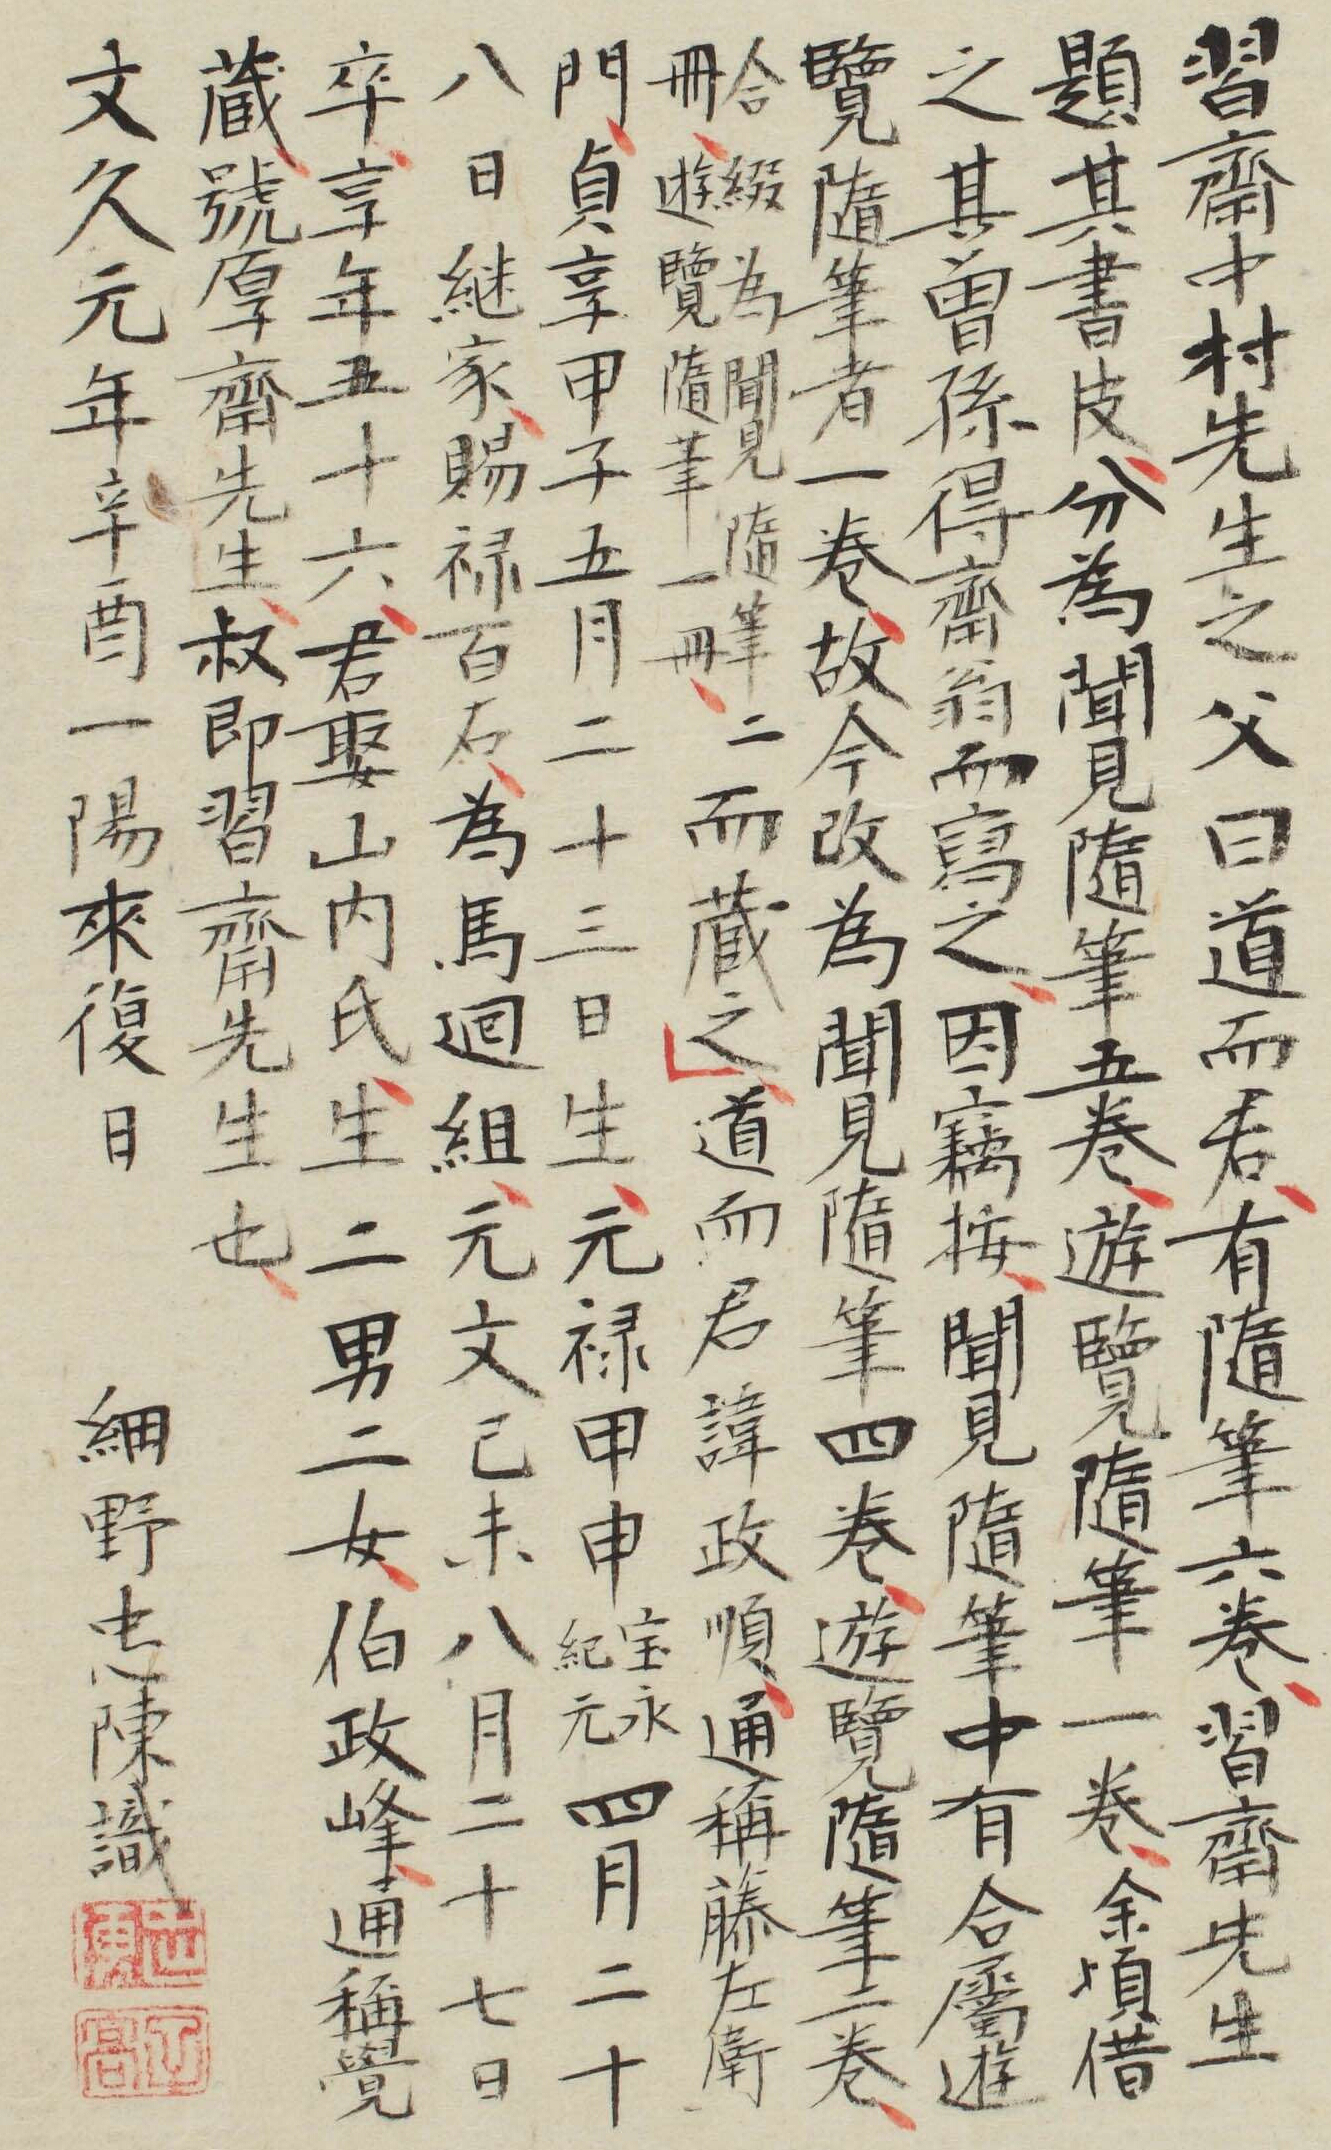 習齋中村先生之父曰道而君有隨筆六卷習齋先生
題其書皮分為聞見隨筆五卷遊覽隨筆一卷余頃借
之其曽孫得齋翁而寫之因竊按聞見隨筆中有合屬遊
覽隨筆者一卷故今改為聞見隨筆四卷遊覽隨筆二卷
合綴為聞見隨筆二
冊遊覽隨筆一冊
而蔵之道而君諱政順通稱藤左衛
門貞享甲子五月二十三日生元禄甲申
宝永
紀元
四月二十
八日継家賜禄百石為馬廻組元文己未八月二十七日
卒享年五十六君娶山内氏生二男二女伯政峰通稱覺
蔵號厚齋先生叔即習齋先生也
文久元年辛酉一陽來復日 細野忠陳識
忠陳